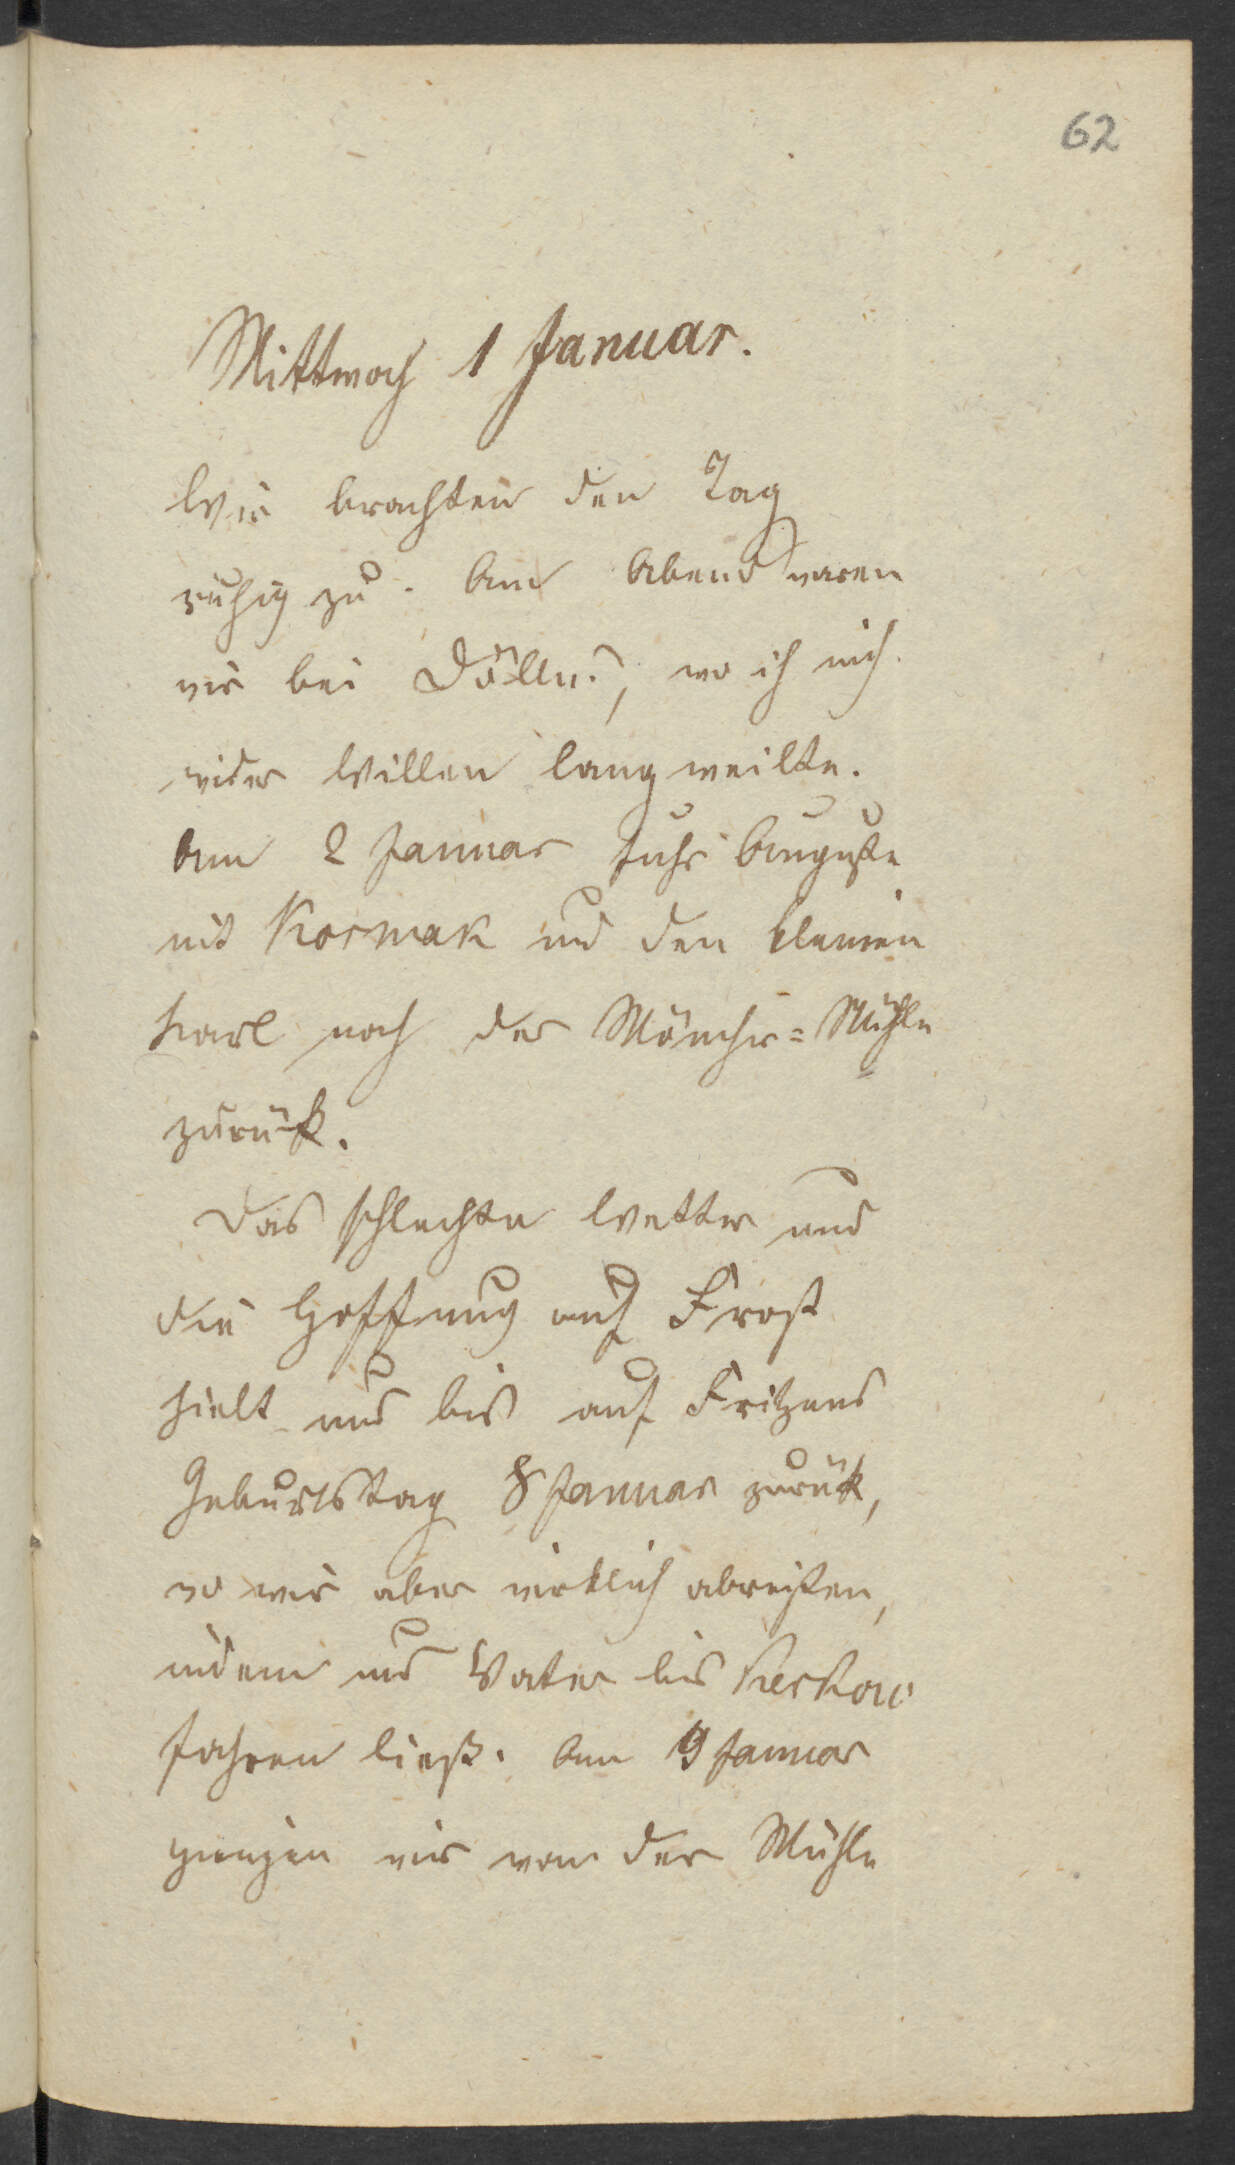 62
Mittwoch 1 Januar.
Wir brachten den Tag
ruhig zu. Am Abend waren
wir bei Dölln:, wo ich mich
wider Willen langweilte.
Am 2 Januar fuhr Auguste
mit Kosmak und den kleinen
Karl nach der Mönchs=Mühle
zurück.
Das schlechte Wetter und
die Hoffnung auf Frost
hielt uns bis auf Fritzens
Geburtstag 8 Januar zurük,
wo wir aber wirklich abreisten,
indem uns Vater bis
fahren ließ. Am 9 Januar
giengen wir von der Mühle